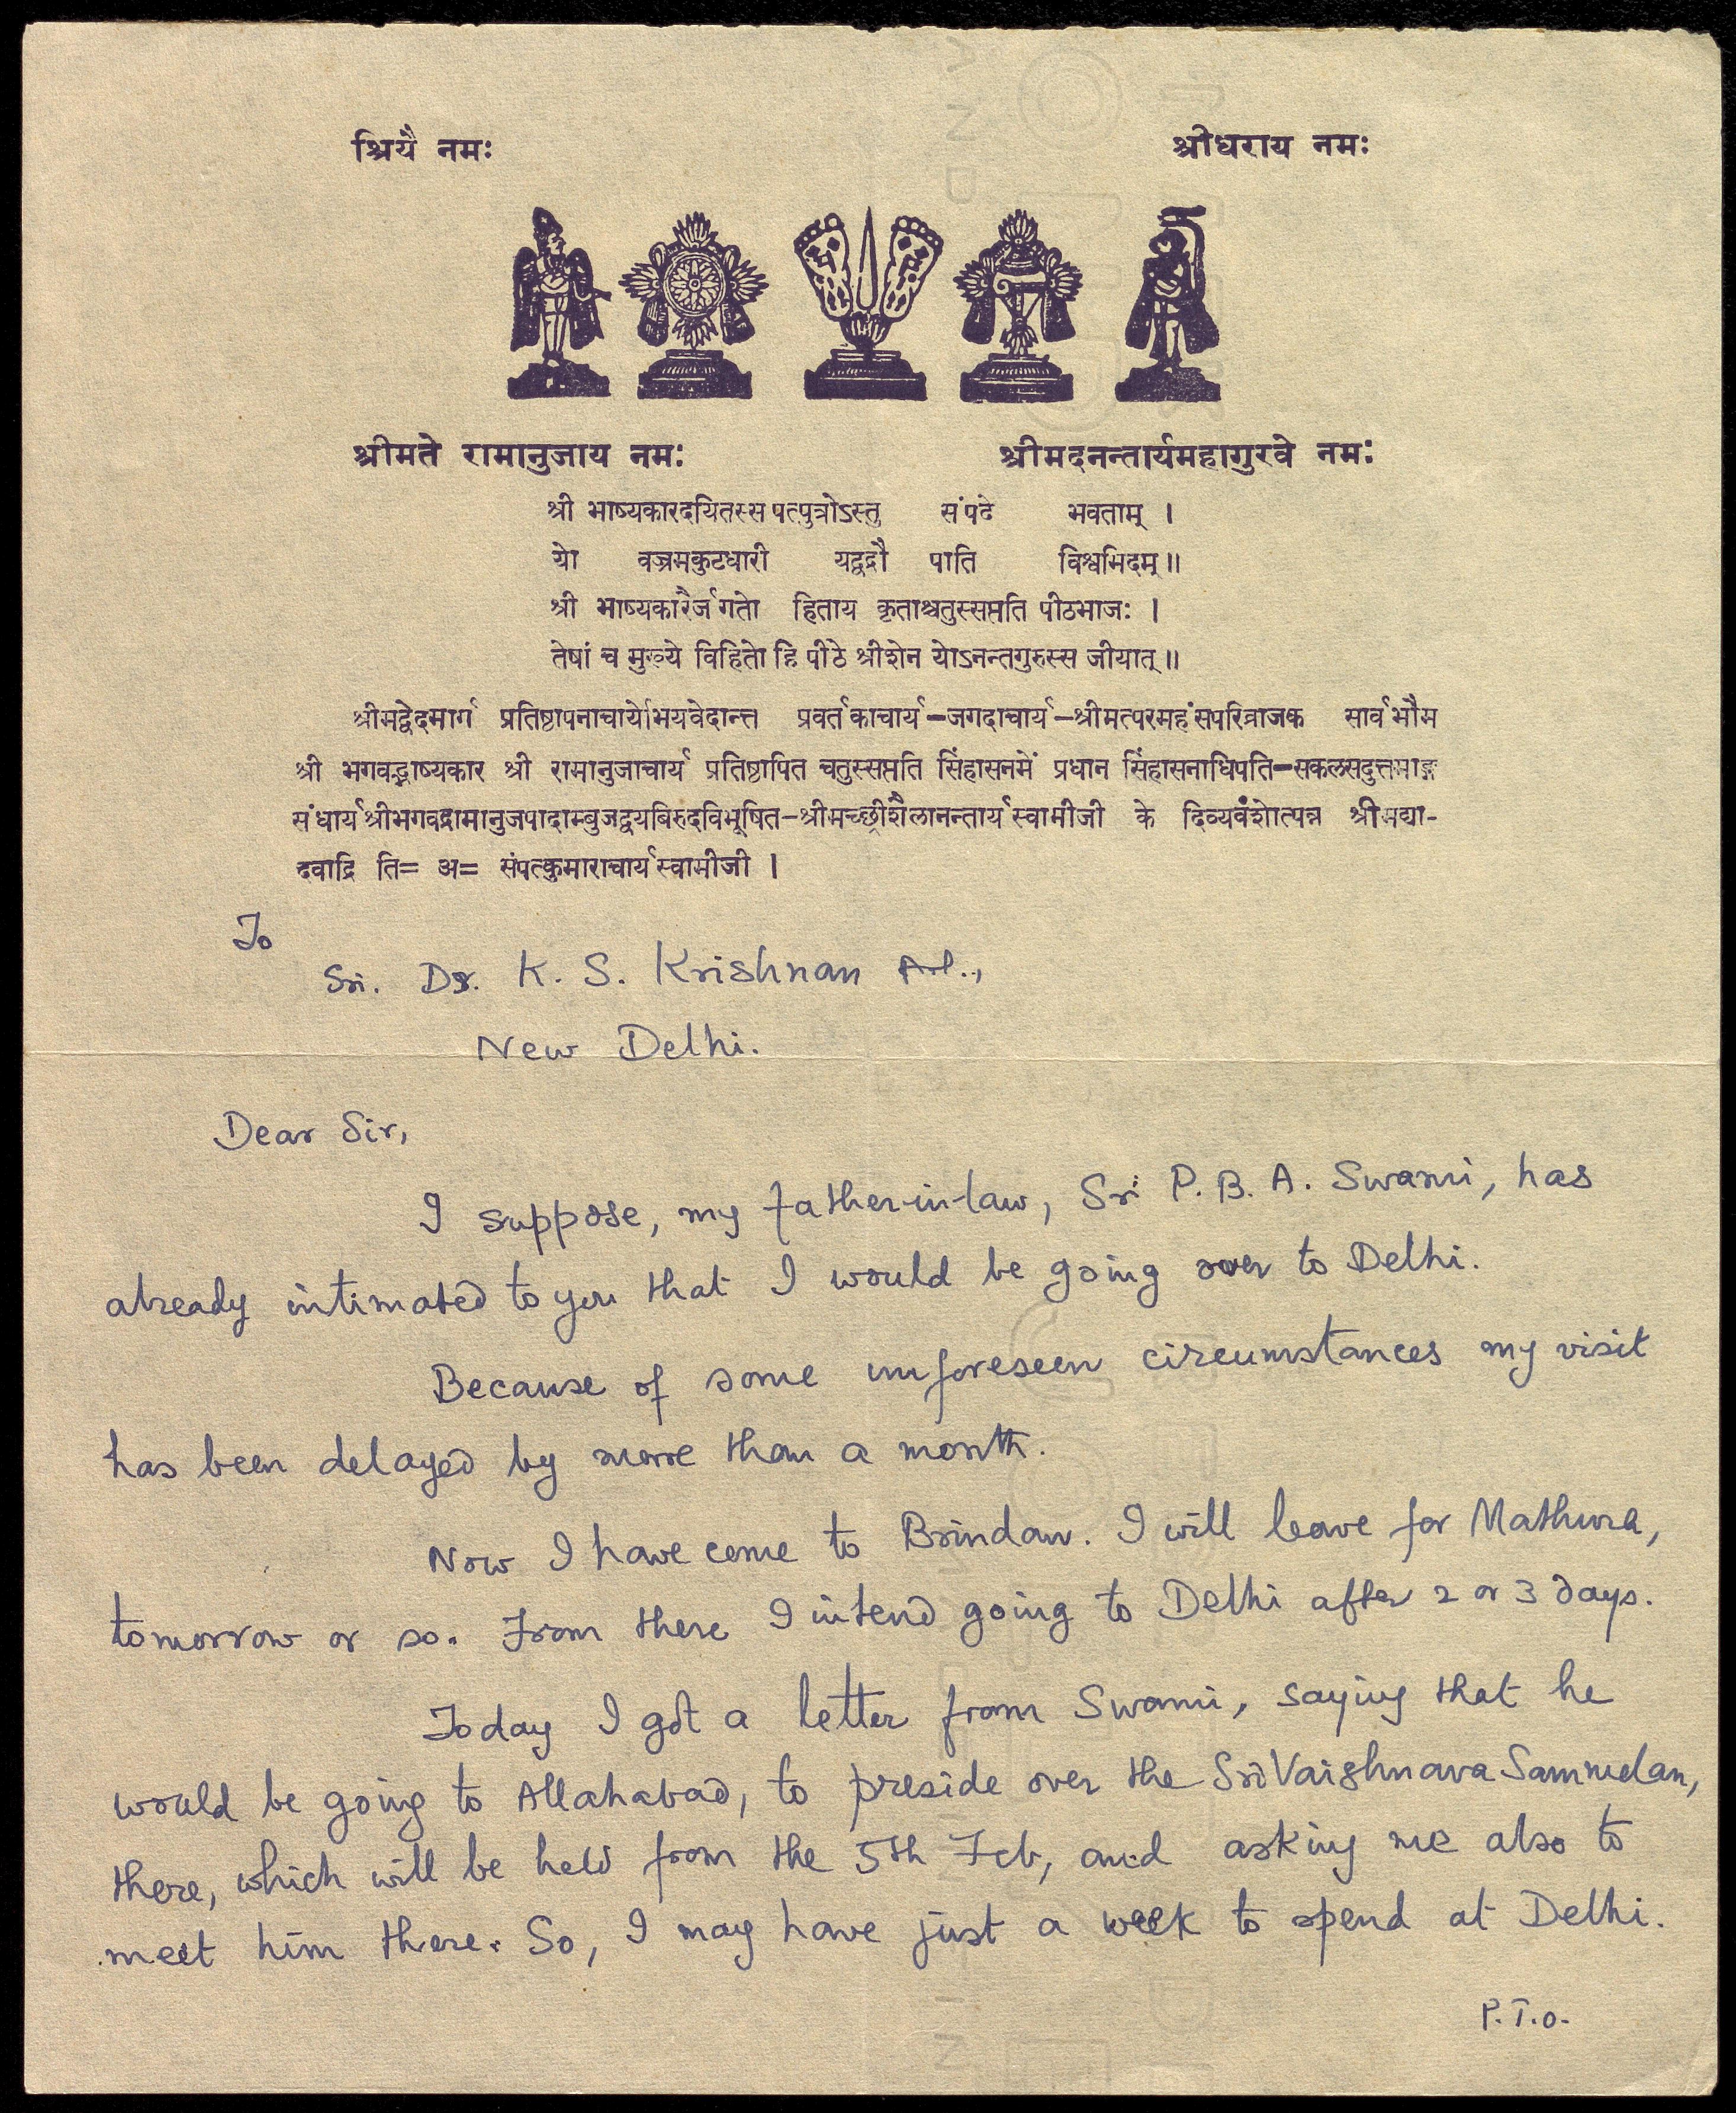 श्रियै नमः श्रीधराय नमः
श्रीमते रामानुजाय नमः श्रीमदनन्तार्यमहागुरवे नमः
श्री भाष्यकारदयितस्स पत्पुत्रोऽस्तु संपदे भवताम् ।
यो वज्रमकुटधारी यद्वद्रौ पाति विश्वमिदम् ॥
श्री भाष्यकारैर्जगतो हिताय कृताश्चतुस्सप्तति पीठभाजः ।
तेषां च मुख्ये विहितो हि पीठे श्रीशेन योऽनन्तगुरुस्स जीयात् ॥
श्रीमद्वेदमार्ग प्रतिष्ठापनाचार्योभयवेदान्त प्रवर्तकाचार्य-जगदाचार्य-श्रीमत्परमहंसपरिव्राजक सार्वभौम
श्री भगवद्भाष्यकार श्री रामानुजाचार्य प्रतिष्ठापित चतुस्सप्तति सिंहासनमें प्रधान सिंहासनाधिपति-सकलसदुत्तमाङ्ग
संधार्य श्रीभगवद्रामानुजपादाम्बुजद्वयबिरुदविभूषित-श्रीमच्छ्रीशैलानन्तार्य स्वामीजी के दिव्यवंशोत्पन्न श्रीमद्या-
दवाद्रि ति= अ= संपत्कुमाराचार्य स्वामीजी ।
To
Sri. Dr. K. S. Krishnan Avl..,
New Delhi.
Dear Sir,
I suppose, my father-in-law, Sri P. B. A. Swami, has
already intimated to you that I would be going over to Delhi.
Because of some unforeseen circumstances my visit
has been delayed by more than a month.
Now I have come to Brindavn. I will leave for Mathura,
tomorrow or so. From there I intend going to Delhi after 2 or 3 days.
Today I got a letter from Swami, saying that he
would be going to Allahabad, to preside over the Sri Vaishnava Sammelan,
there, which will be held from the 5th Feb, and asking me also to
meet him there. So, I may have just a week to spend at Delhi.
P.T.O.